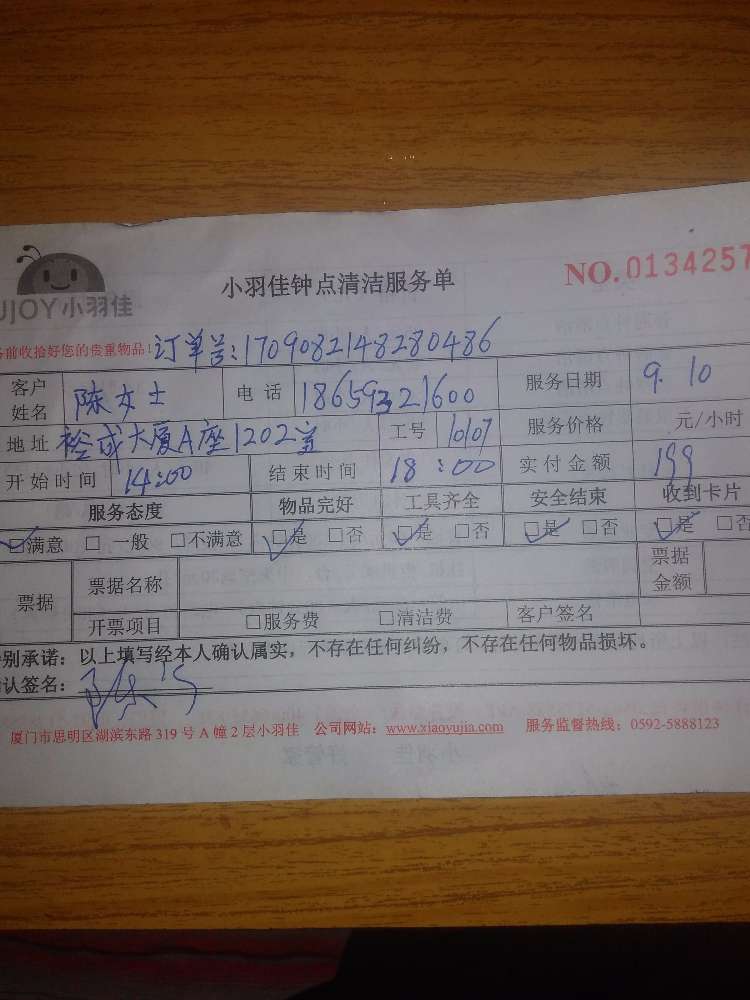 小羽佳钟点清洁服务单 NO.0134257
UJOY小羽佳
务前收拾好您的贵重物品! 订单号:1709082148280486
客户姓名 陈女士 电话 18659321600 服务日期 9.10
地址 裕成大厦A座1202室 工号 10107 服务价格 元/小时
开始时间 14:00 结束时间 18:00 实付金额 199
服务态度 物品完好 工具齐全 安全结束 收到卡片
☑满意 □一般 □不满意 ☑是 □否 ☑是 □否 ☑是 □否 ☑是 □否
票据 票据名称 票据金额
开票项目 □服务费 □清洁费 客户签名
特别承诺：以上填写经本人确认属实，不存在任何纠纷，不存在任何物品损坏。
确认签名：
厦门市思明区湖滨东路 319 号 A 幢 2 层小羽佳 公司网站：www.xiaoyujia.com 服务监督热线：0592-5888123